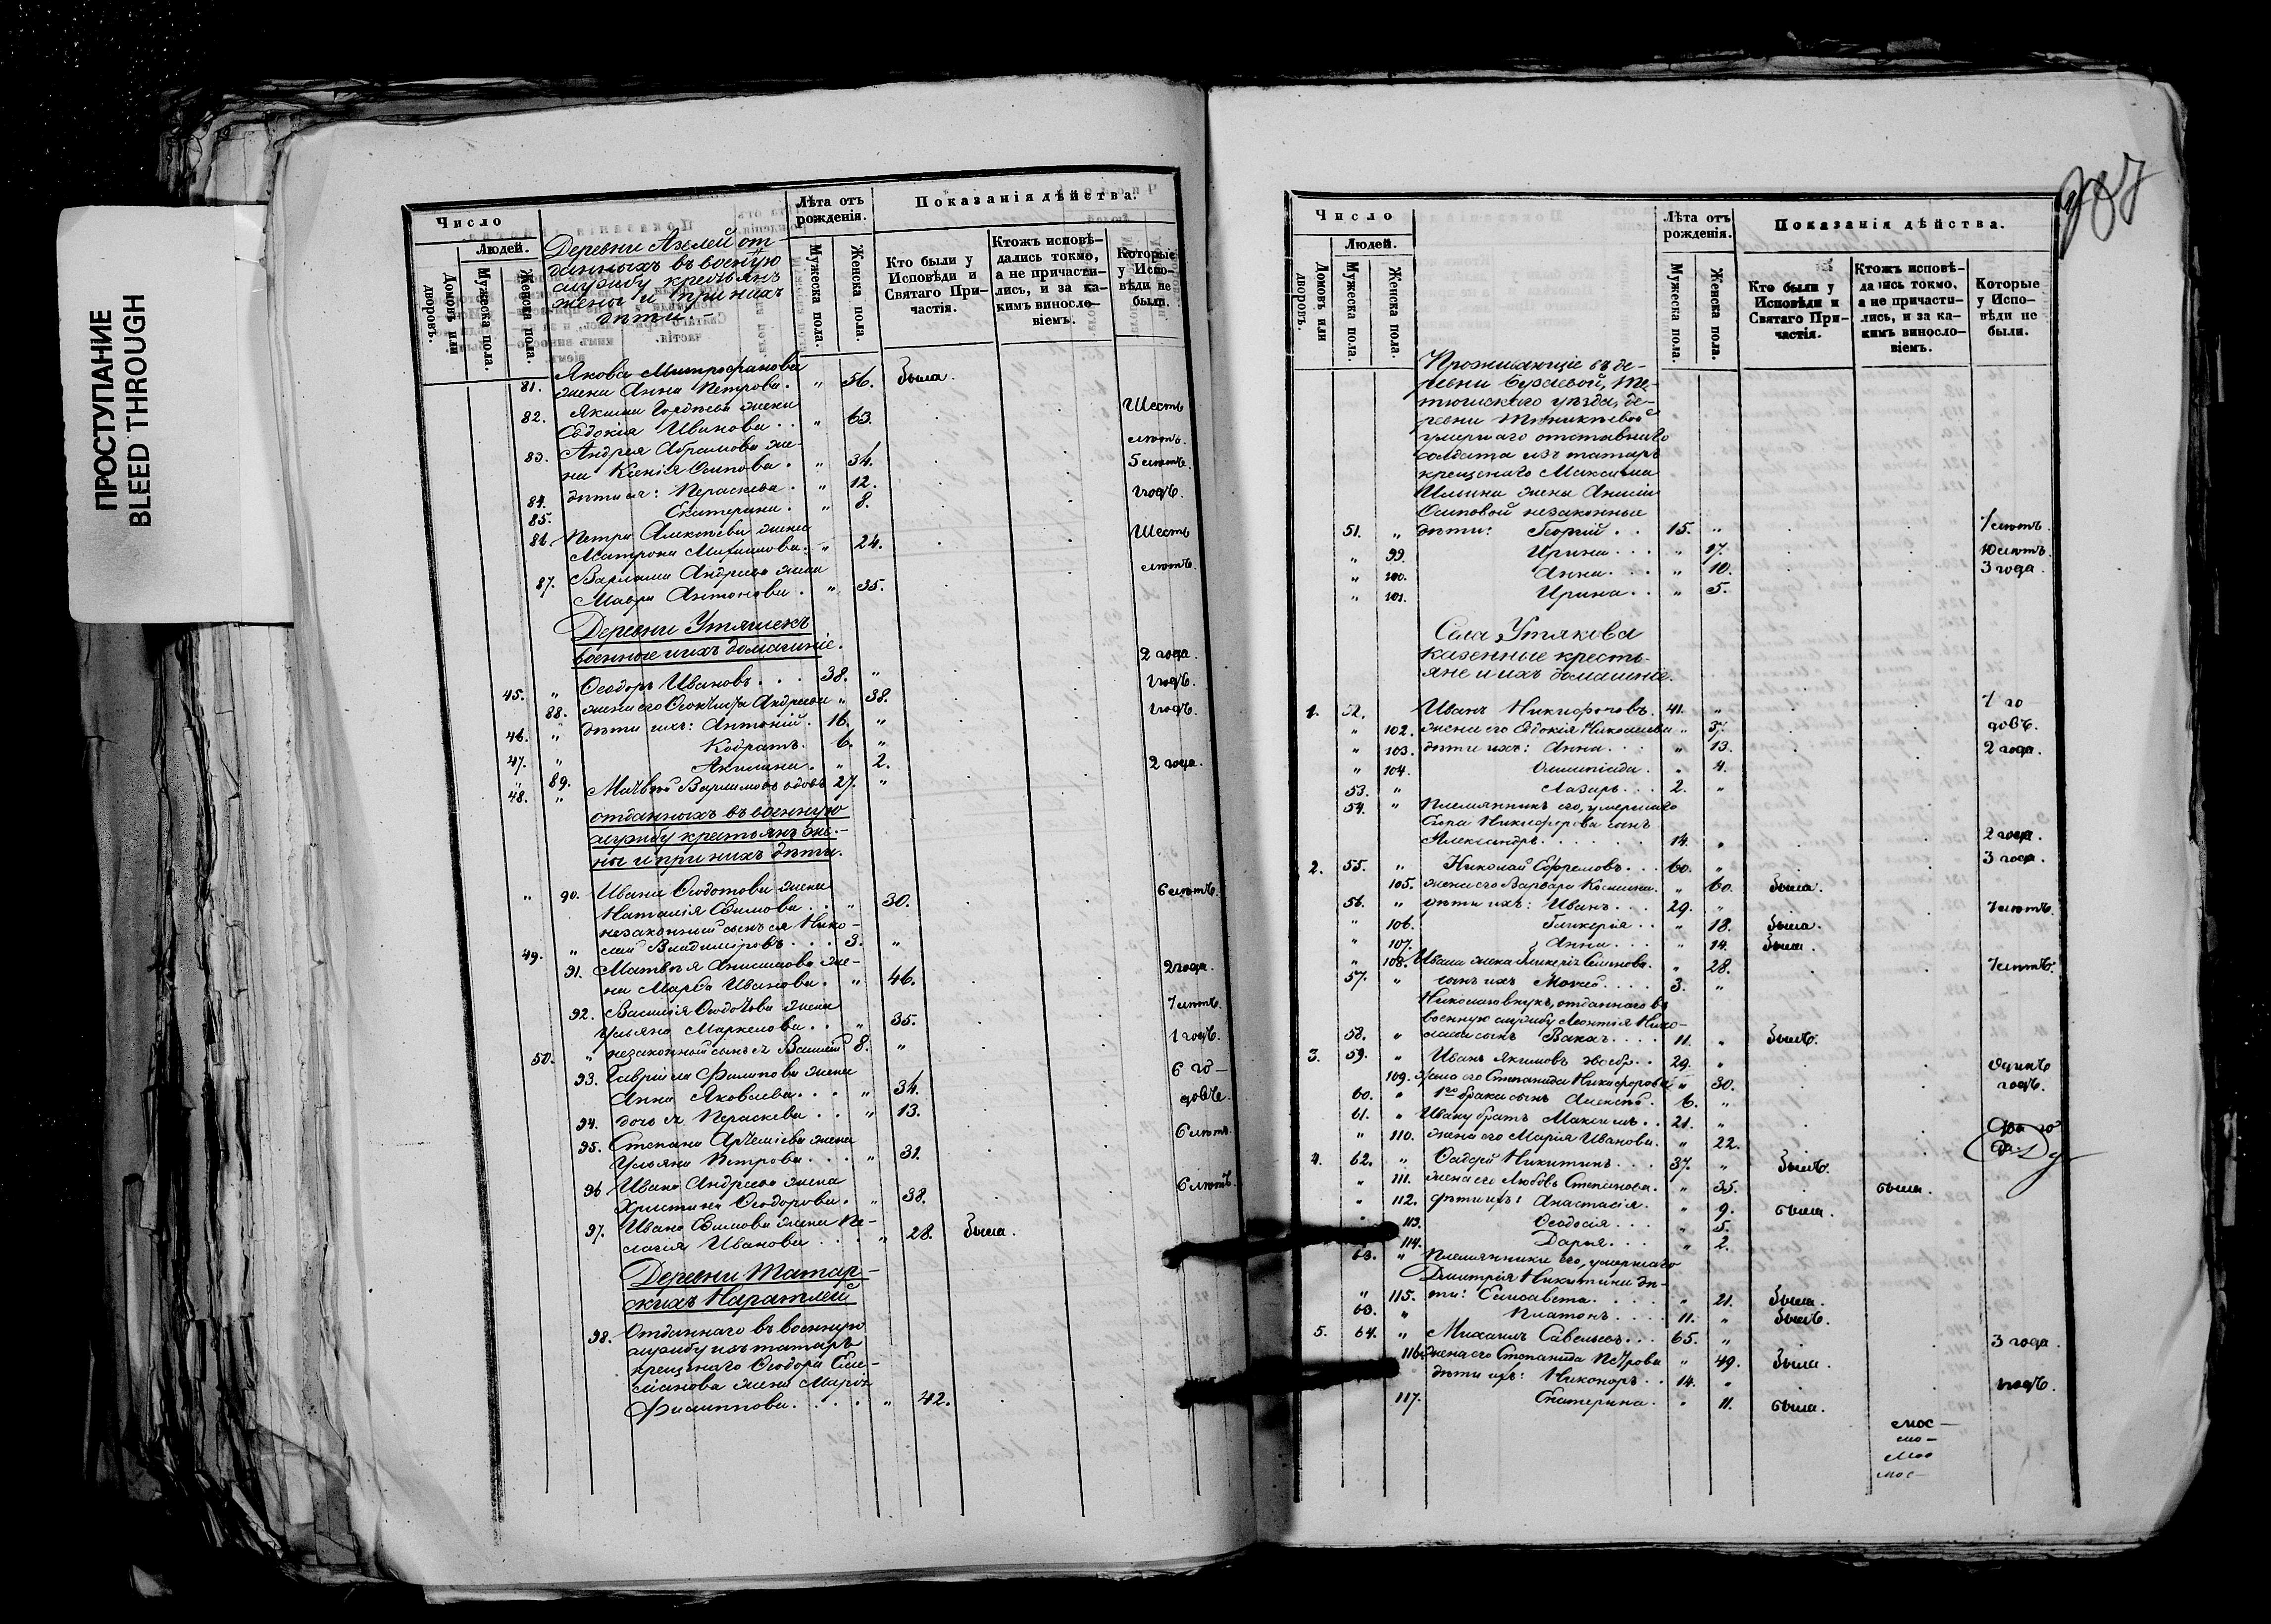 ПРОСТУПАНИЕ
BLEED THROUGH
Число
Людей.
Домовъ или дворовъ.
Мужеска пола.
Женска пола.
Деревни Азелей от
данныхъ въ военную
службу крестьянъ
жены и при нихъ
дѣти,
Лѣта отъ рожденія.
Мужеска пола.
Женска пола.
Показанія дѣйства.
Кто были у Исповѣди и Святаго Причастія.
Ктожъ исповѣдались токмо, а не причастились, и за какимъ винословіемъ.
Которые у Исповѣди не были.
Якова Митрофанова
81. жена Анна Петрова. „ 56. была.
82. Якима Гордѣева жена Шесть
Евдокія Иванова. . „ 63. лѣтъ.
83. Андрея Абрамова же-
на Ксенія Осипова. „ 34. 5 лѣтъ.
84. дѣти ея: Параскева. „ 12. годъ.
85. Екатерина. „ 8.
86. Петра Алексѣева жена Шесть
Матрона Михайлова. „ 24. лѣтъ.
87. Варлама Андреева жена
Мавра Антонова. „ 35.
Деревни Утяшекъ
военные и ихъ домашніе.
45. „ Ѳеодоръ Ивановъ. . . 38. „ 2 года.
88. жена его Андреева „ 38. годъ.
46. „ дѣти ихъ: Антоній. 16. „ годъ.
47. „ Кодратъ. 6. „
„ 89. Акилина. „ 2.
48. „ Матвѣй Варламовъ вдовъ 27. „ 2 года.
отданныхъ въ военную
службу крестьянъ же-
ны и при нихъ дѣти.
„ 90. Ивана Ѳеодотова жена
Наталія Ефимова. . „ 30. 6 лѣтъ.
незаконный сынъ ея Нико-
49. „ лай Владиміровъ. . . 3. „
91. Матвѣя Анисимова же-
на Марѳа Иванова. „ 46. 2 года.
92. Василія Ѳеодотова жена
Ульяна Маркелова. . „ 35. 7 лѣтъ.
50. „ незаконный сынъ ея Василій 8. „ 1 годъ.
93. Гавріила Филипова жена 6 го-
Анна Яковлева. . . „ 34. довъ.
94. дочь ея Параскева. . „ 13.
95. Степана Артеміева жена
Ульяна Петрова. . . „ 31. 6 лѣтъ.
96 Ивана Андреева жена
Христина Ѳеодорова. „ 38. 6 лѣтъ.
97. Ивана Ефимова жена Пе-
лагія Иванова . . . „ 28. была.
Деревни Татар-
скихъ Наратлей
98. Отданнаго въ военную
службу изъ татаръ
крещенаго Ѳеодора Еме-
ліанова жена Марія
Филиппова. . . . „ 42.
Число
Людей.
Домовъ или дворовъ.
Мужеска пола.
Женска пола.
Лѣта отъ рожденія.
Мужеска пола.
Женска пола.
Показанія дѣйства.
Кто были у Исповѣди и Святаго Причастія.
Ктожъ исповѣдались токмо, а не причастились, и за какимъ винословіемъ.
Которые у Исповѣди не были.
Проживающіе въ де-
ревни Бурaевой, Те-
тюшскаго уѣзда, де-
ревни
умершаго отставнаго
солдата изъ татаръ
крещенаго Максима
Ильина жены Анисіи
Осиповой незаконные
51. „ дѣти: Георгій. . . 15. „ 7 лѣтъ.
„ 99. Ирина. . . „ 17. 10 лѣтъ.
„ 100. Анна. . . „ 10. 3 года.
„ 101. Ирина. . „ 5.
Села Утякова
казенные кресть-
яне и ихъ домашніе.
1. 52. Иванъ Никифоровъ. 41. „ 7 го
„ 102. жена его Евдокія Николаева „ 37. довъ.
„ 103. дѣти ихъ: Анна. . . „ 13. 2 года.
„ 104. Олимпіада. „ 4.
53. „ Лазарь. . . 2. „
54. „ Племянникъ его, умершаго
Никифорова сынъ
Александръ. . . . . . 14. „ 2 года.
2. 55. „ Николай Ефремовъ. . . 60. „ 3 года.
105. жена его Варвара Космина. „ 60. была.
56. „ дѣти ихъ: Иванъ. . . . 29. „ 7 лѣтъ.
„ 106. Гликерія. . „ 18. была.
„ 107. Анна. . . „ 14. была.
„ 108. Ивана жена Гликерія Семенова. „ 28. 7 лѣтъ.
57. „ сынъ ихъ Моисей. . . . 3. „
Николаю внукъ, отданнаго въ
военную службу Леонтія Нико-
58. „ лаева сынъ . . . . 11. „ былъ.
3. 59. „ Иванъ Якимовъ . . 29. „ Одинъ
109. Жена его Степанида Никифорова „ 30. годъ.
60. „ 1го брака сынъ Алексѣй. 6. „
61. „ Ивану братъ Максимъ. . 21. „ Два го
„ 110. жена его Марія Иванова. „ 22. да.
4. 62. „ Никитинъ. . . 37. „ былъ.
„ 111. жена его Любовь Степанова. „ 35. была.
„ 112. дѣти ихъ: Анастасія. „ 9. была.
113. Ѳеодосія. . . „ 5.
114. Дарья. . . „ 2.
63. „ Племянники его, умершаго
Дмитрія Никитина дѣ-
„ 115. ти: Елисавета. . . . „ 21. была.
63. „ Платонъ. . . . 11. „ былъ.
5. 64. „ Михаилъ Савельевъ. . . 65. „ 3 года.
116. жена его Степанида Петрова „ 49. была.
дѣти ихъ: Никоноръ. . 14. „ годъ.
117. Екатерина. „ 11. была.